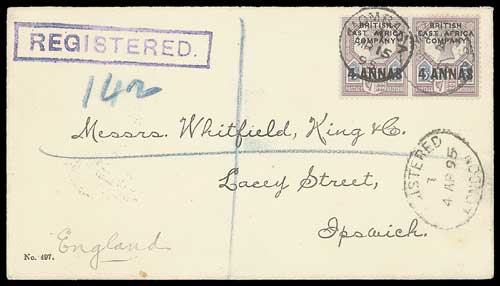 REGISTERED.
142
BRITISH
EAST AFRICA
COMPANY
4 ANNAS
BRITISH
EAST AFRICA
COMPANY
4 ANNAS
MOMBASA
15
95
Messrs. Whitfield, King & Co.
Lacey Street,
Ipswich.
England
REGISTERED LONDON
4 AP 95
No. 497.